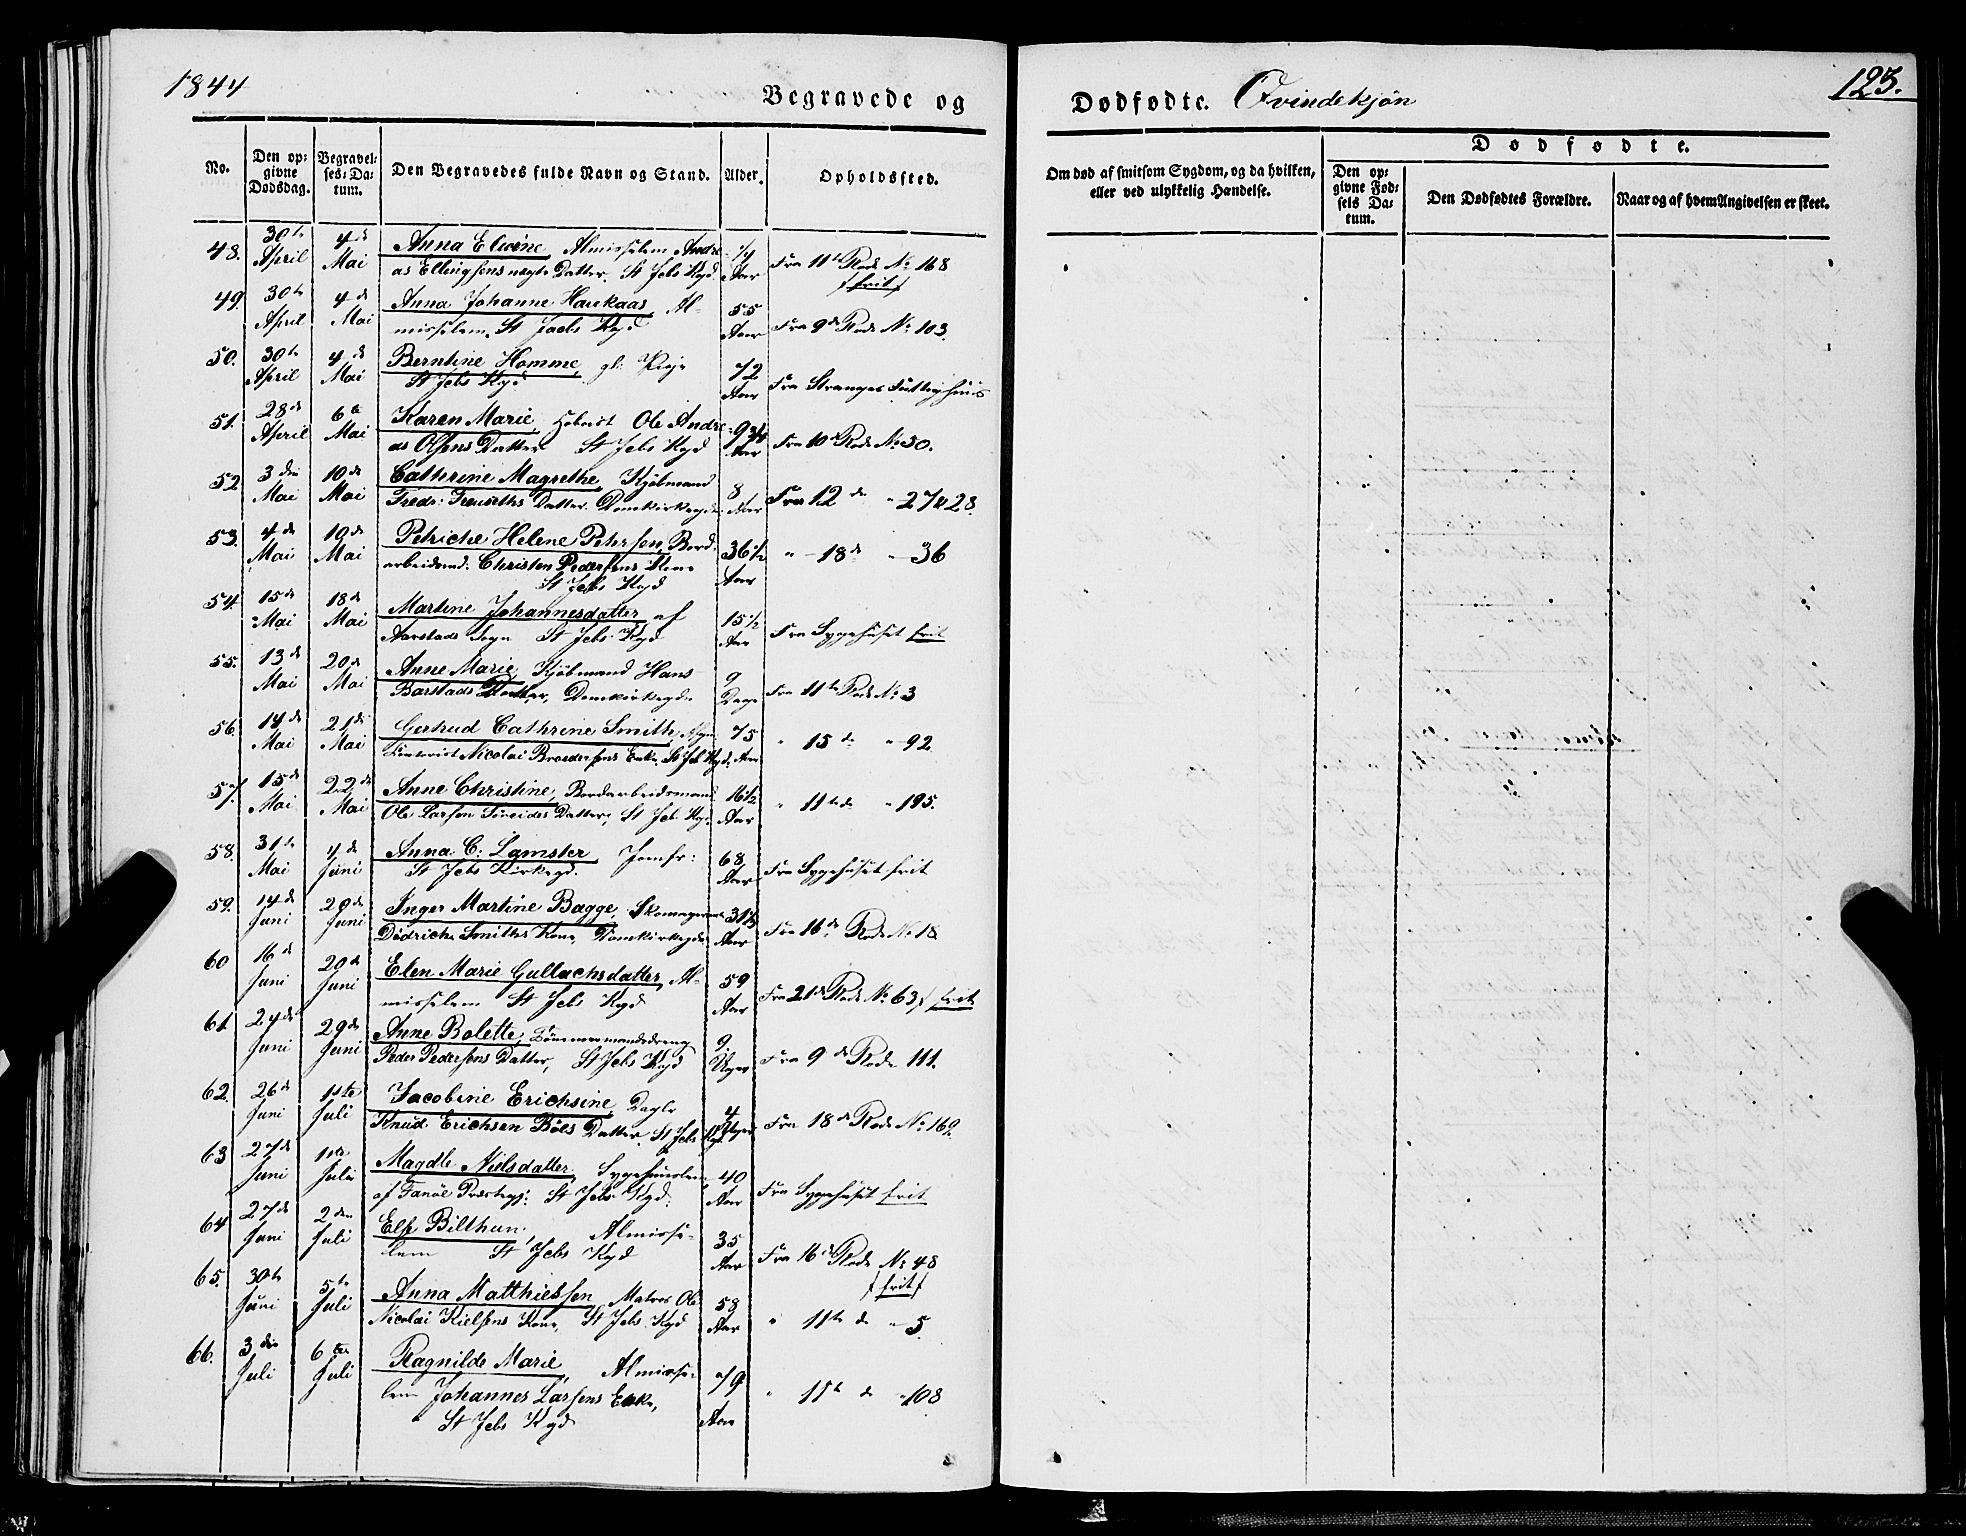 1844
Begravede og
Dødfødte. Qvindekjøn
123.
No.
Den opgivne Dødsdag.
Begravelses-Datum.
Den Begravedes fulde Navn og Stand.
Alder.
Opholdssted.
Om død af smitsom Sygdom, og da hvilken,
eller ved ulykkelig Hændelse.
Dødfødte.
Den opgivne Fødsels Datum.
Den Dødfødtes Forældre.
Naar og af hvem Angivelsen er skeet.
48. 30te April 4de Mai Anna Elwine, Almisselem Andre-
as Ellingsens Datter. St Jcbs Kgd Aar Fra 11te Rode No 168
(frit)
49. 30te April 4de Mai Anna Johanne Haukaas, Al-
misselem. St Jacbs Kgd 55 Aar Fra 9de Rode No 103.
50. 30te April 4de Mai Berntine Homme, gl: Pige
St Jcbs Kgd 72 Aar Fra Stranges Fattighuus
51. 28de April 6te Mai Karen Marie, Ole Andre-
as Olsens Datter St Jcbs Kgd 9 3/4 Aar Fra 10de Rode No 30.
52 3die Mai 10de Mai Cathrine Magrethe, Kjøbmand
Fredr: Datter. Domkirkegde. 8 Aar Fra 12 de " 27 & 28.
53. 4de Mai 10de Mai Petriche Helene Petersen, Bord-
arbeidsmd: Christen Pedersens Kone
St Jcbs Kgd 36 1/2 Aar " 18de " 36
54. 15de Mai 18de Mai Martine Johannesdatter af
Aarstads Sogn St Jcbs Kgd 15 1/2 Aar Fra Sygehuset frit
55. 13de Mai 20de Mai Anne Marie, Kjøbmand Hans
Barstads Datter, Domkirkegde. 9 Dage Fra 11te Rode No 3
56. 14de Mai 21de Mai Gertrud Cathrine Smith,
Nicolai Brodersens Enke, St Jcb Kgd. 75 Aar " 15de " 92.
57. 15de Mai 22de Mai Anne Christine, Bordarbeidsmand
Ole Larsen Datter, St Jcb Kgd. 16 1/2 Aar " 11te de " 195.
58. 31te Mai 4de Juni Anna C: Lamster Jomfr:
St Jcbs Kirkegd. 68 Aar Fra Sygehuset frit
59. 14de Juni 20de Juni Inger Martine Bagge, Skomagerm
Didrich Smiths Kone, Domkirkegde 31 1/2 Aar Fra 16de Rode No 18
60 16de Juni 20de Juni Elen Marie Gullachsdatter, Al-
misselem St Jcbs Kgd 59 Aar Fra 21de Rode No 63, frit
61. 24de Juni 29de Juni Anne Bolette, Tømmermandsdreng
Peder Pedersens Datter, St Jcbs Kgd 9 Uger Fra 9de Rode 111.
62. 26de Juni 1ste Juli Jacobine Erichsine, Dagl:
Knud Erichsen Bøes Datter, St Jcbs Kgd 4 Uger Fra 18de Rode No 169.
63 27de Juni 1ste Juli Magdle Nielsdatter, Sygehuuslem
af Fanøe Præstegj: St Jcbs Kgd: 40 Aar Fra Sygehuset frit
64 27de Juni 2den Juli Else Bilthun, Almisse-
lem St Jcbs Kgd 35 Aar Fra 16de Rode No 48
(frit)
65. 30te Juni 5te Juli Anna Matthiessen, Matros Ole
Nicolai Kielsens Kone, St Jcbs Kgd 58 Aar " 11te de " 5.
66. 3die Juli 6te Juli Ragnilde Marie, Almisse-
lem Johannes Larsens Enke,
St Jcbs Kgd 79 Aar " 11te de " 108